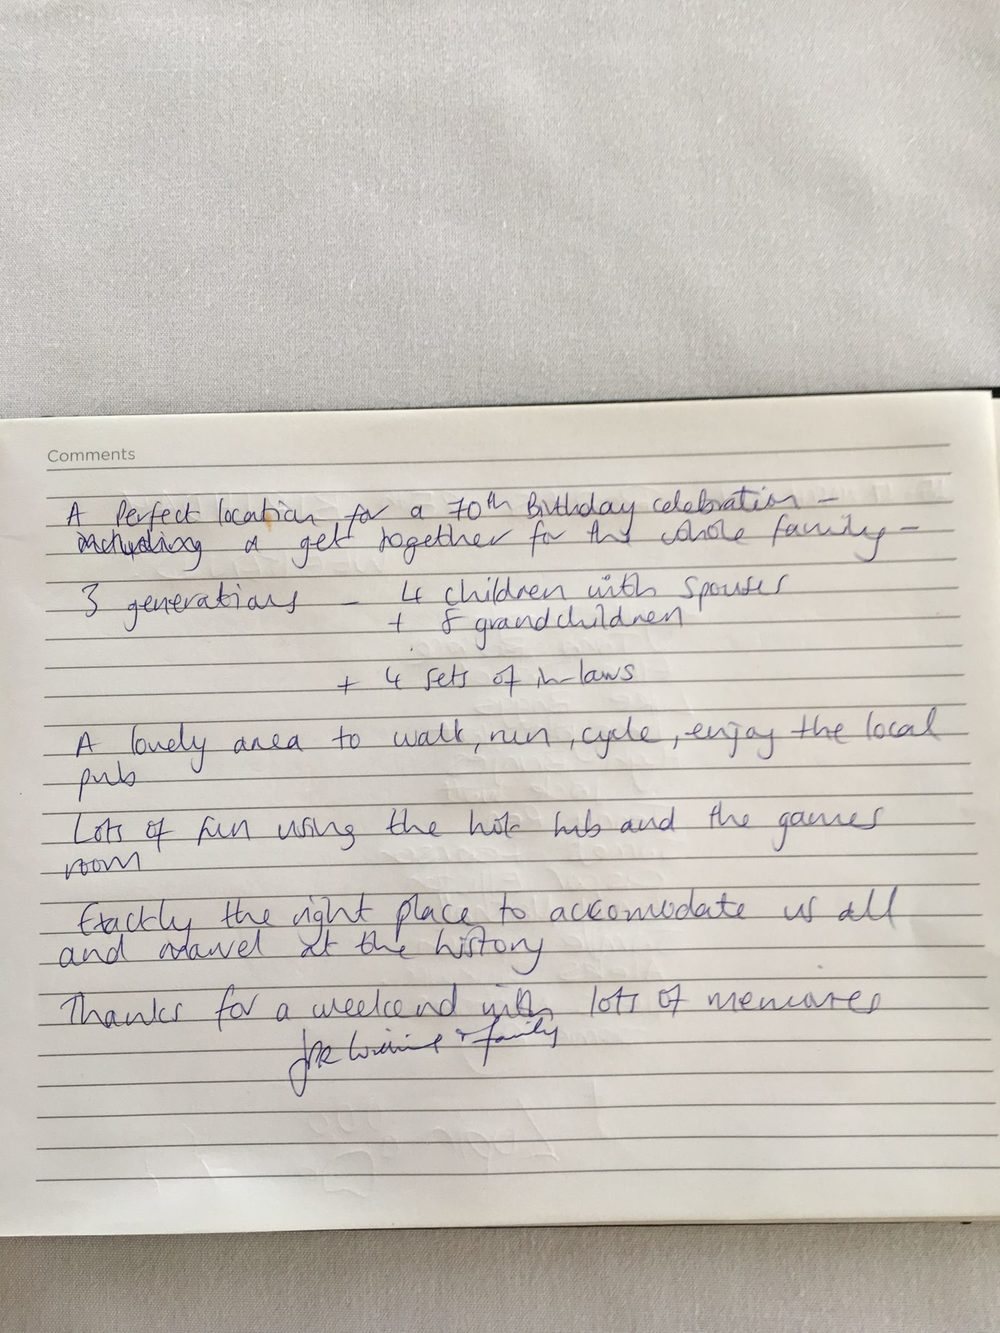 Comments
A Perfect location for a 70th Birthday celebration -
including a get together for the whole family -
3 generations - 4 children with spouses
+ 8 grandchildren
+ 4 sets of in-laws
A lovely area to walk, run, cycle, enjoy the local
pub
Lots of fun using the hot tub and the games
room
Exactly the right place to accomodate us all
and marvel at the history
Thanks for a weekend with lots of memories
& family